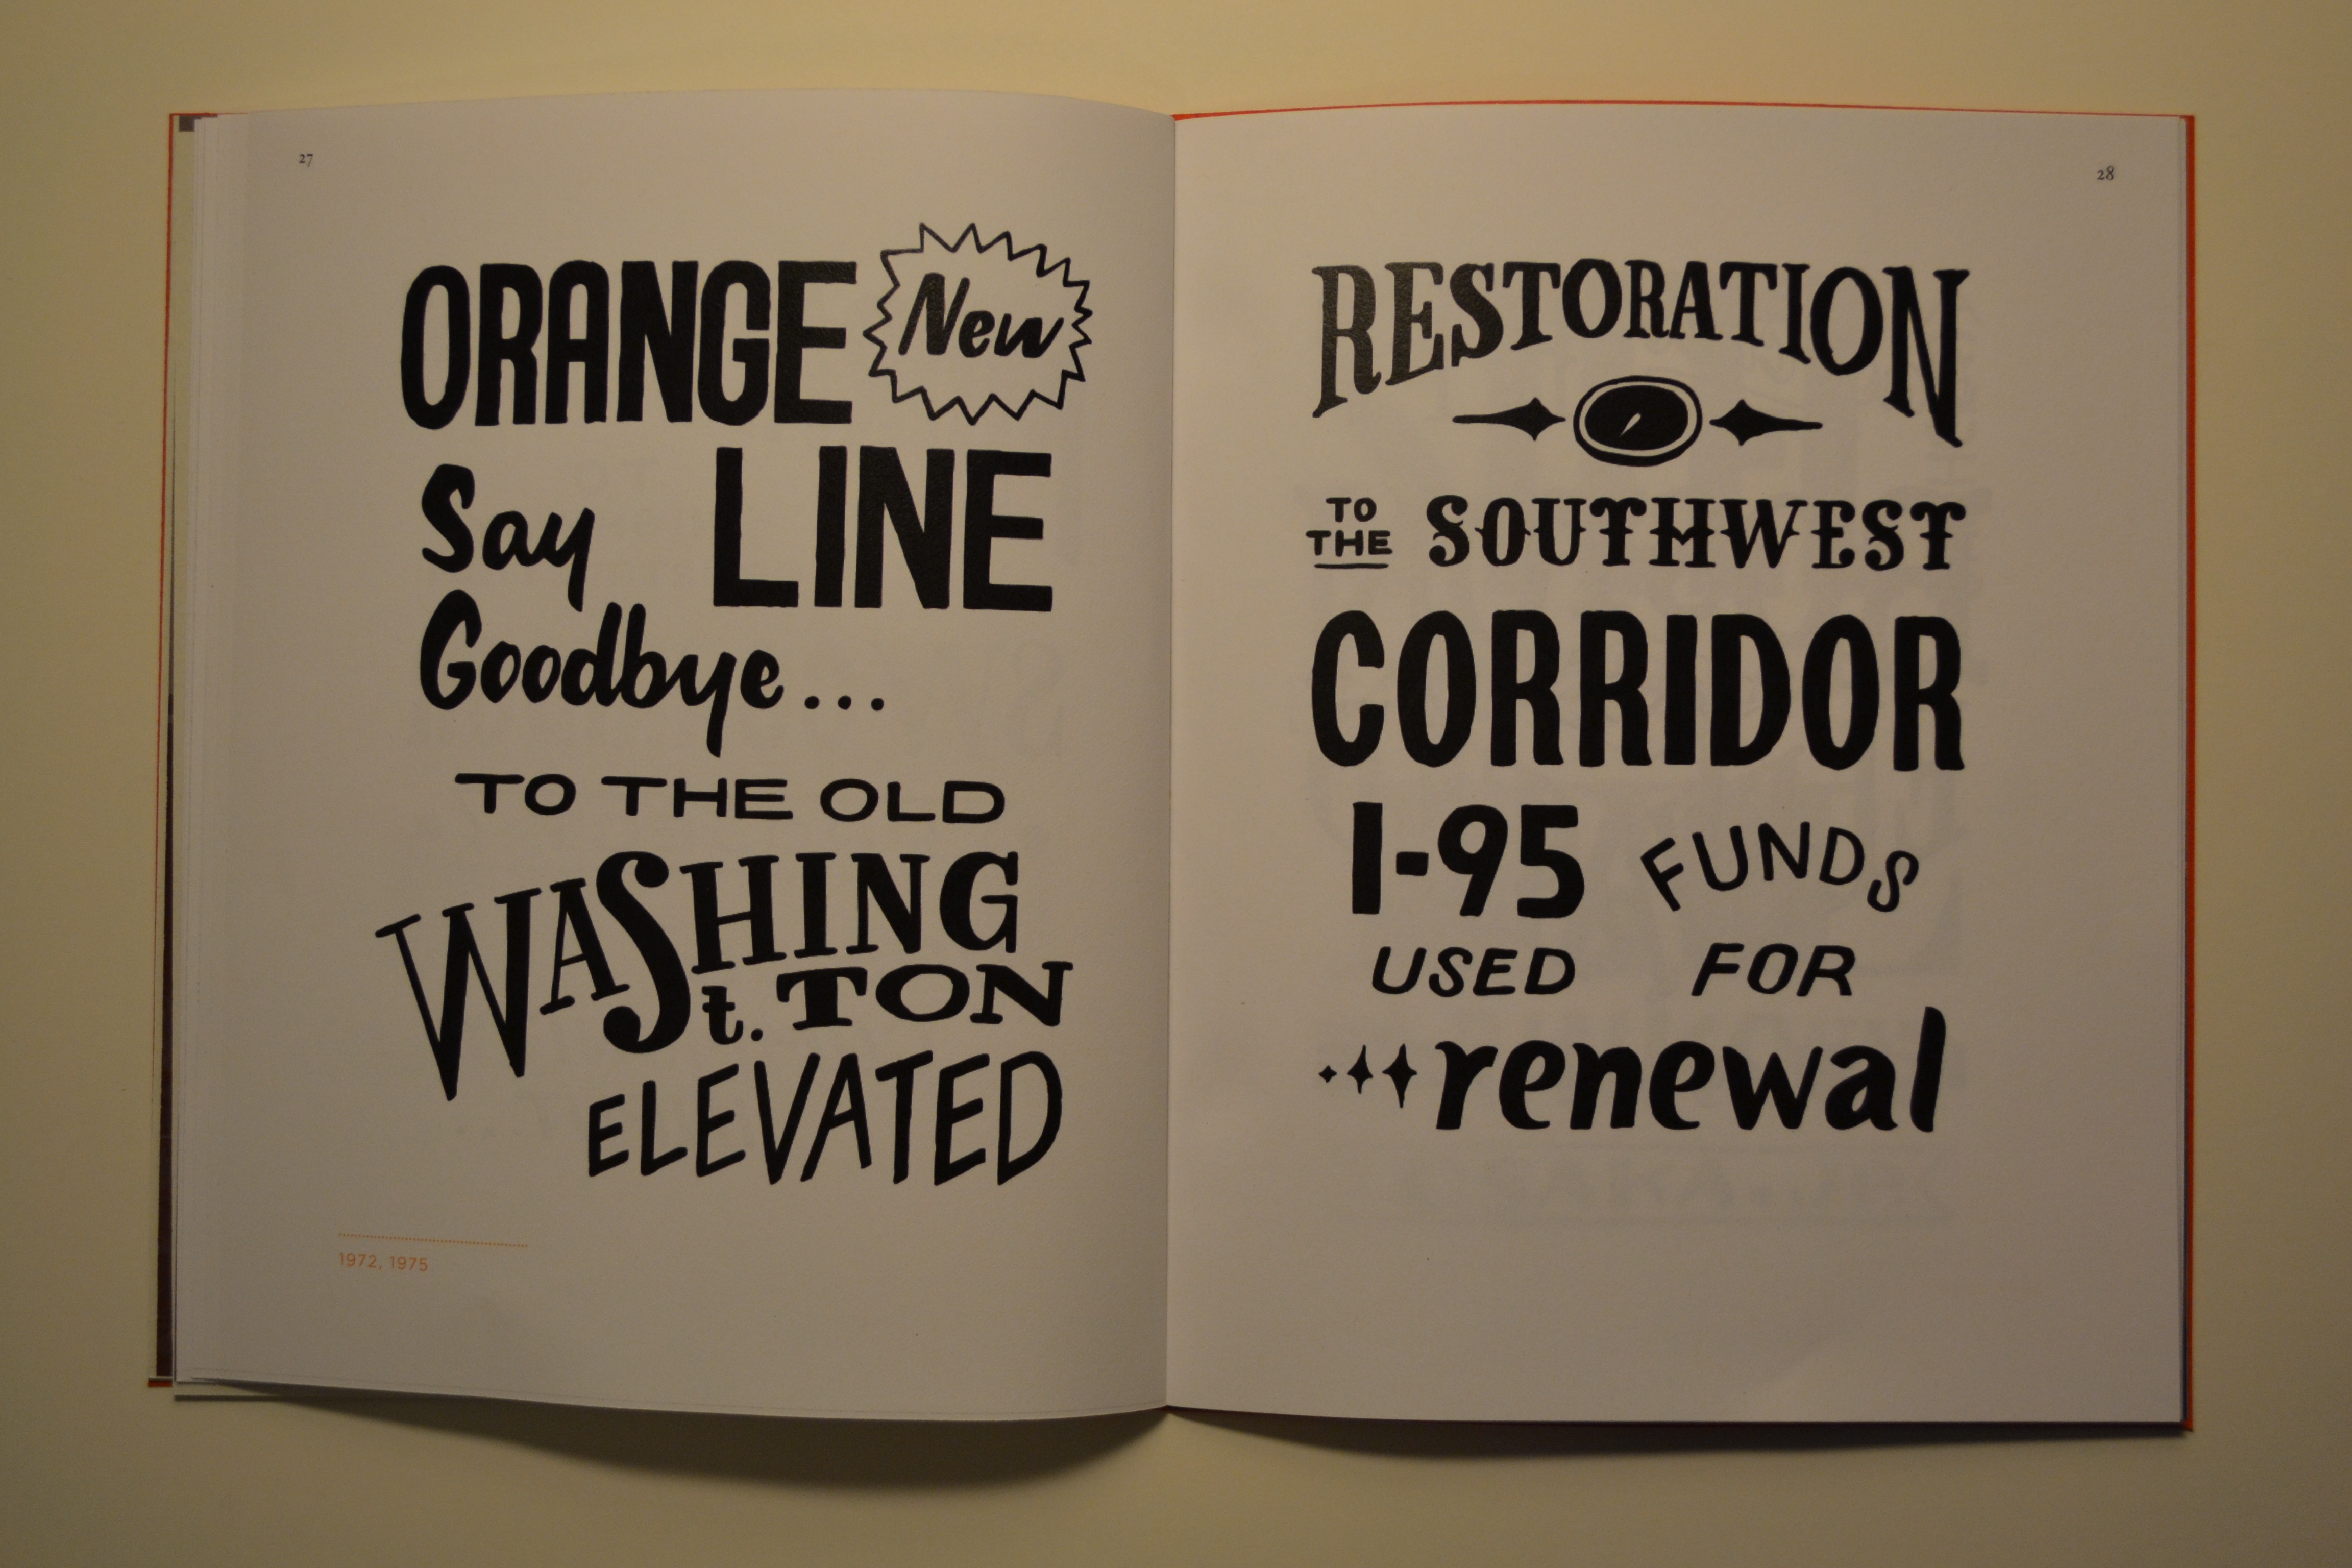 27
ORANGE New
Say LINE
Goodbye...
TO THE OLD
WASHING
t. TON
ELEVATED
1972, 1975
28
RESTORATION
TO
THE SOUTHWEST
CORRIDOR
I-95 FUNDS
USED FOR
renewal